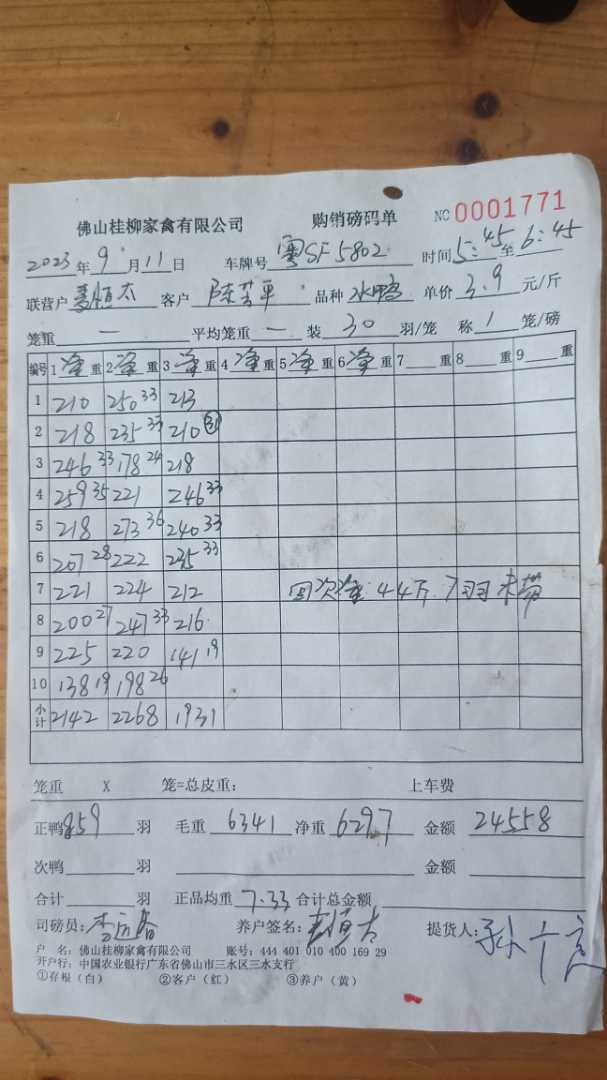 佛山桂柳家禽有限公司 购销磅码单 NO 0001771
2023年9月11日 车牌号 粤SF5802 时间5:45至6:45
联营户 恒太 客户 陈芳平 品种 水鸭 单价 3.9 元/斤
笼重 一 平均笼重 一 装 30 羽/笼 称 1 笼/磅
编号 1净重 2净重 3净重 4净重 5净重 6净重 7 重 8 重 9 重
1 210 250 33 213
2 218 235 33 210
3 246 33 178 24 218
4 259 35 221 246 33
5 218 273 36 240 33
6 207 28 222 235 33
7 221 224 212 回次净:44斤.7羽未带
8 200 27 247 33 216
9 225 220 141 19
10 138 19 198 26
小计 2142 2268 1931
笼重 X 笼=总皮重: 上车费
正鸭 859 羽 毛重 6341 净重 6297 金额 24558
次鸭 羽 金额
合计 羽 正品均重 7.33 合计总金额
司磅员: 养户签名: 提货人:
户 名: 佛山桂柳家禽有限公司 账号: 444 401 010 400 169 29
开户行: 中国农业银行广东省佛山市三水区三水支行
①存根（白） ②客户（红） ③养户（黄）